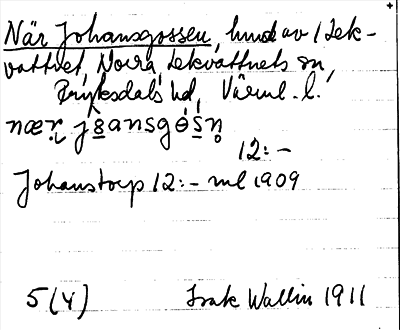 När Johansgossen, hmd av 1 Lek-
vattnet, Norra, Lekvattnets sn,
Fryksdals hd, Värml. l.
nær jȯansgósn
12:-
Johanstorp 12:- ml 1909
5(4) Isak Wallin 1911